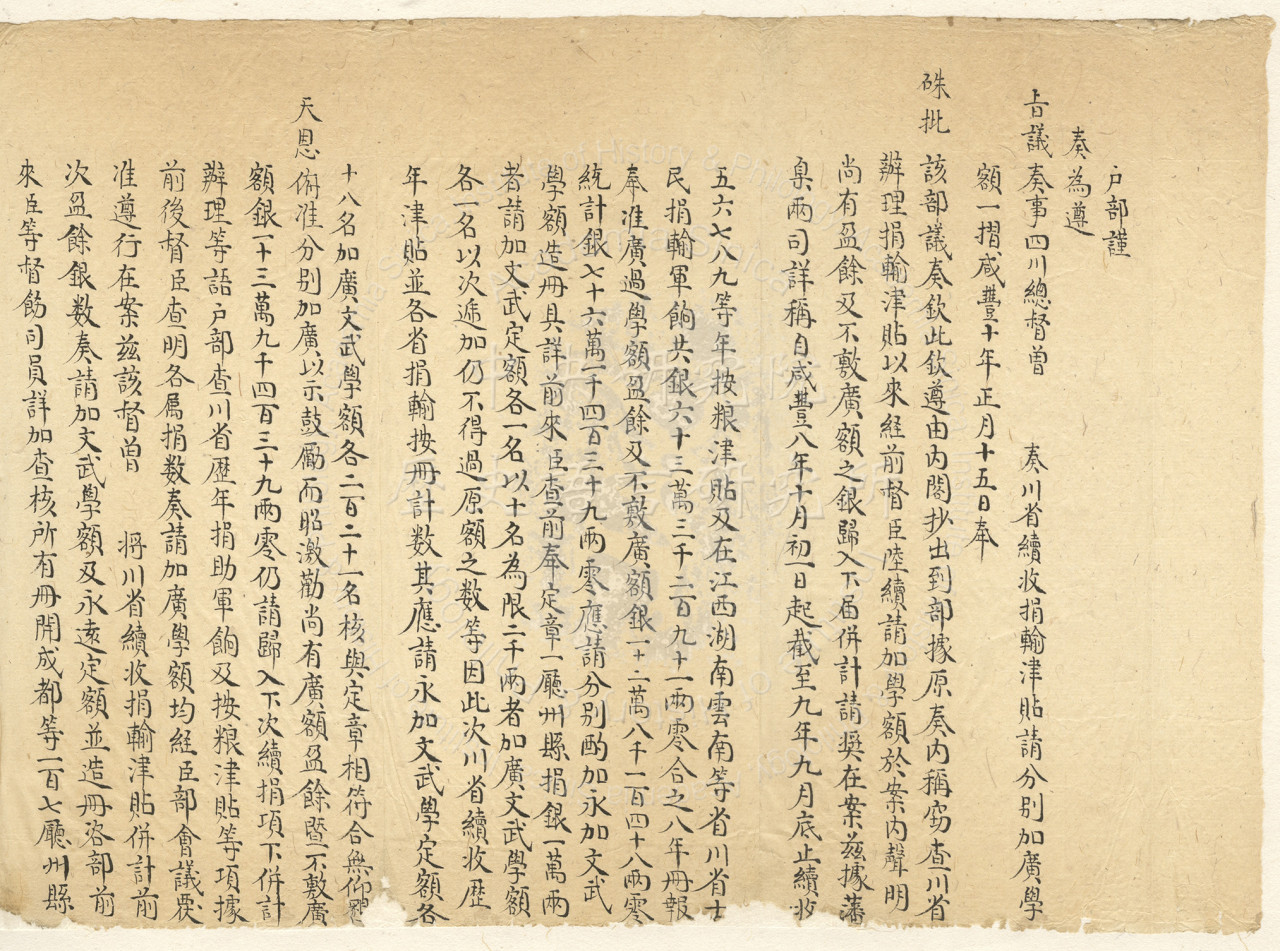 户部謹
奏為遵
旨議奏事四川總督曾　奏川省續收捐輸津貼請分別加廣學
額一摺咸豐十年正月十五日奉
硃批該部議奏欽此欽遵由内閣抄出到部據原奏内稱窃查川省
辦理捐輸津貼以來経前督臣陸續請加學額於案内聲明
尚有盈餘及不敷廣額之銀歸入下届併計請奬在案兹據藩
臬兩司詳稱自咸豐八年十月初一日起截至九年九月底止續收
五六七八九等年按粮津貼及在江西湖南雲南等省川省士
民捐輸軍餉共銀六十三萬三千二百九十一兩零合之八年冊報
奉准廣過學額盈餘及不敷廣額銀一十二萬八千一百四十八兩零
統計銀七十六萬一千四百三十九兩零應請分别酌加永加文武
學額造冊具詳前來臣查前奉定章一廳州縣捐銀一萬兩
者請加文武定額各一名以十名為限二千兩者加廣文武學額
各一名以次遞加仍不得過原額之数等因此次川省續收歷
年津貼並各省捐輸按冊計数其應請永加文武學定額各
十八名加廣文武學額各二百二十一名核與定章相符合無仰懇
天恩俯准分别加廣以示鼓勵而昭激勸尚有廣額盈餘暨不敷廣
額銀一十三萬九千四百三十九兩零仍請歸入下次續捐項下併計
辦理等語户部查川省歷年捐助軍餉及按粮津貼等項據
前後督臣查明各属捐数奏請加廣學額均経臣部會議覆
准遵行在案兹該督曾　将川省續收捐輸津貼併計前
次盈餘銀数奏請加文武學額及永遠定額並造冊咨部前
來臣等督飭司員詳加查核所有冊開成都等一百七廳州縣